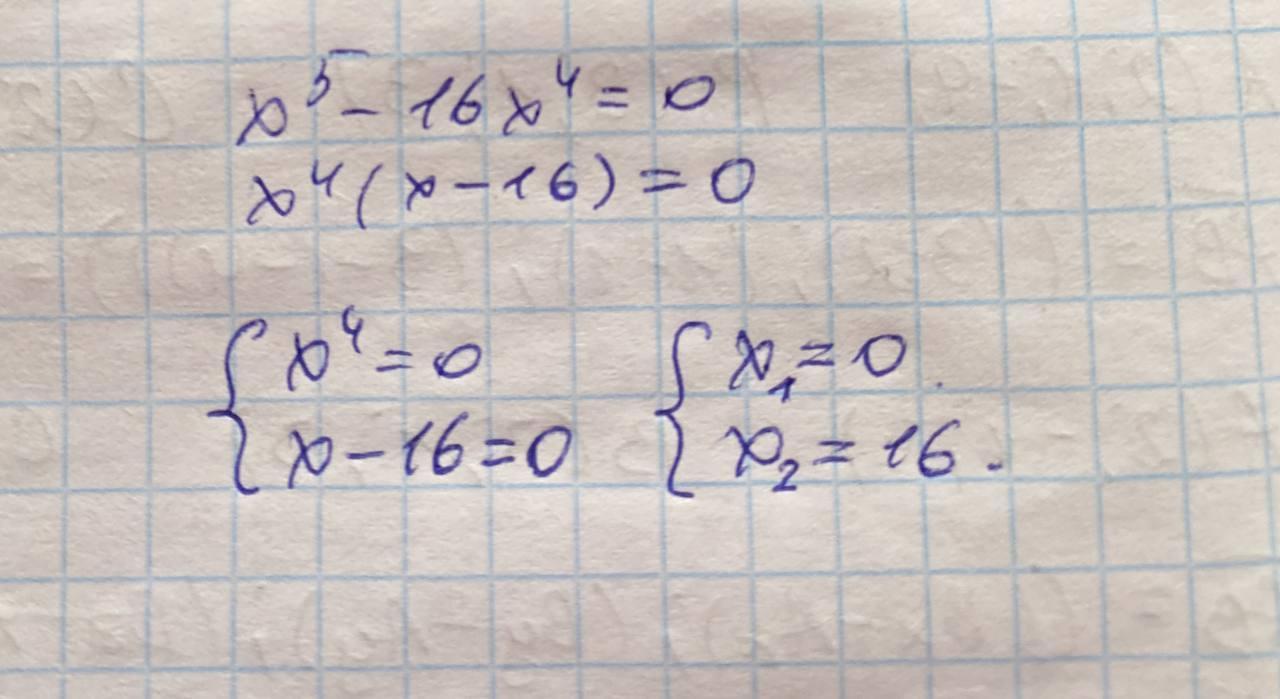 x⁵ - 16x⁴ = 0
x⁴(x - 16) = 0
{ x⁴ = 0 { x₁ = 0
x - 16 = 0 x₂ = 16.